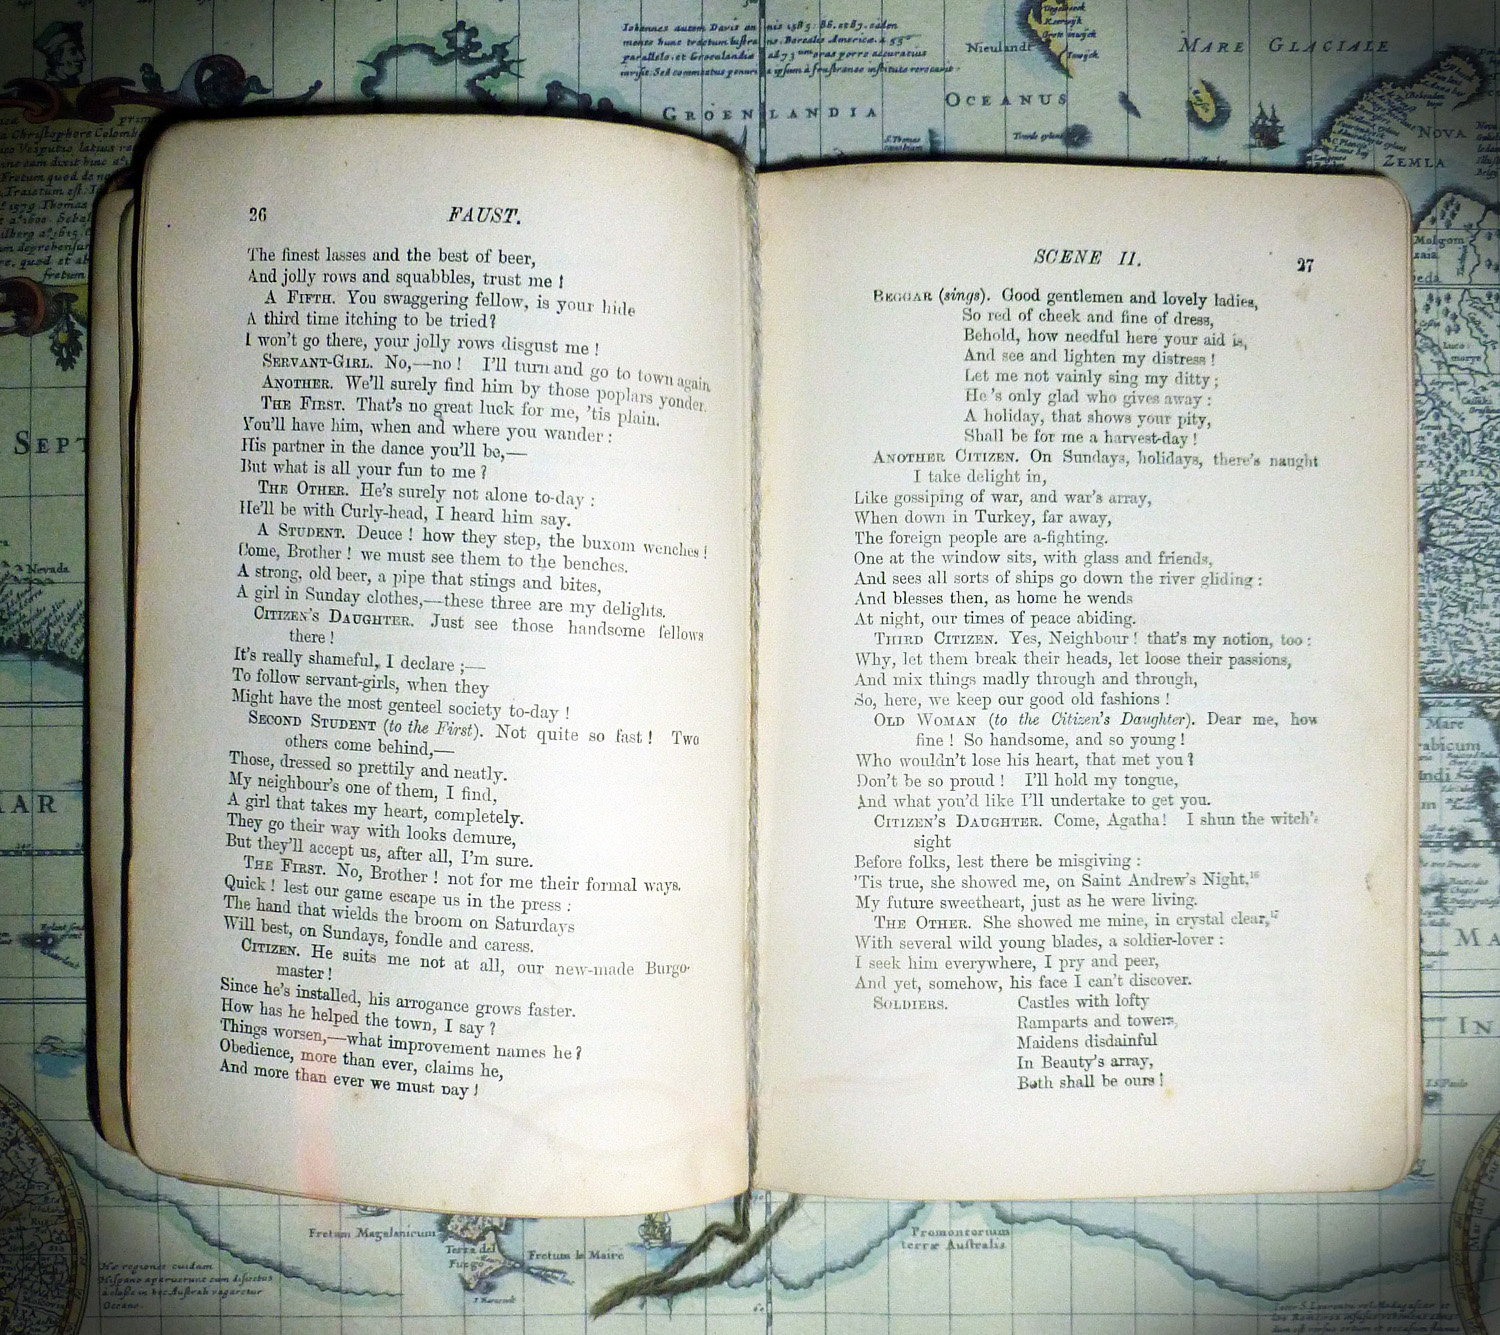 26 FAUST.
The finest lasses and the best of beer,
And jolly rows and squabbles, trust me !
A FIFTH. You swaggering fellow, is your hide
A third time itching to be tried?
I won't go there, your jolly rows disgust me !
SERVANT-GIRL. No,—no ! I'll turn and go to town again
ANOTHER. We'll surely find him by those poplars yonder.
THE FIRST. That's no great luck for me, 'tis plain.
You'll have him, when and where you wander :
His partner in the dance you'll be,—
But what is all your fun to me ?
THE OTHER. He's surely not alone to-day :
He'll be with Curly-head, I heard him say.
A STUDENT. Deuce ! how they step, the buxom wenches !
Come, Brother ! we must see them to the benches.
A strong, old beer, a pipe that stings and bites,
A girl in Sunday clothes,—these three are my delights.
CITIZEN'S DAUGHTER. Just see those handsome fellows
there !
It's really shameful, I declare ;—
To follow servant-girls, when they
Might have the most genteel society to-day !
SECOND STUDENT (to the First). Not quite so fast ! Two
others come behind,—
Those, dressed so prettily and neatly.
My neighbour's one of them, I find,
A girl that takes my heart, completely.
They go their way with looks demure,
But they'll accept us, after all, I'm sure.
THE FIRST. No, Brother ! not for me their formal ways.
Quick ! lest our game escape us in the press :
The hand that wields the broom on Saturdays
Will best, on Sundays, fondle and caress.
CITIZEN. He suits me not at all, our new-made Burgo-
master !
Since he's installed, his arrogance grows faster.
How has he helped the town, I say ?
Things worsen,—what improvement names he ?
Obedience, more than ever, claims he,
And more than ever we must pay !
SCENE II. 27
BEGGAR (sings). Good gentlemen and lovely ladies,
So red of cheek and fine of dress,
Behold, how needful here your aid is,
And see and lighten my distress !
Let me not vainly sing my ditty ;
He's only glad who gives away :
A holiday, that shows your pity,
Shall be for me a harvest-day !
ANOTHER CITIZEN. On Sundays, holidays, there's naught
I take delight in,
Like gossiping of war, and war's array,
When down in Turkey, far away,
The foreign people are a-fighting.
One at the window sits, with glass and friends,
And sees all sorts of ships go down the river gliding :
And blesses then, as home he wends
At night, our times of peace abiding.
THIRD CITIZEN. Yes, Neighbour ! that's my notion, too :
Why, let them break their heads, let loose their passions,
And mix things madly through and through,
So, here, we keep our good old fashions !
OLD WOMAN (to the Citizen's Daughter). Dear me, how
fine ! So handsome, and so young !
Who wouldn't lose his heart, that met you ?
Don't be so proud ! I'll hold my tongue,
And what you'd like I'll undertake to get you.
CITIZEN'S DAUGHTER. Come, Agatha ! I shun the witch's
sight
Before folks, lest there be misgiving :
'Tis true, she showed me, on Saint Andrew's Night,16
My future sweetheart, just as he were living.
THE OTHER. She showed me mine, in crystal clear,17
With several wild young blades, a soldier-lover :
I seek him everywhere, I pry and peer,
And yet, somehow, his face I can't discover.
SOLDIERS. Castles with lofty
Ramparts and towers,
Maidens disdainful
In Beauty's array,
Both shall be ours !
Nieulandt
MARE GLACIALE
OCEANUS
GROENLANDIA
NOVA
ZEMLA
SEPT
Nevada
AR
Mare
IN
Fretum Magalanicum
Terra del
Fuego
Fretum le Maire
Promontorium
terræ Australis